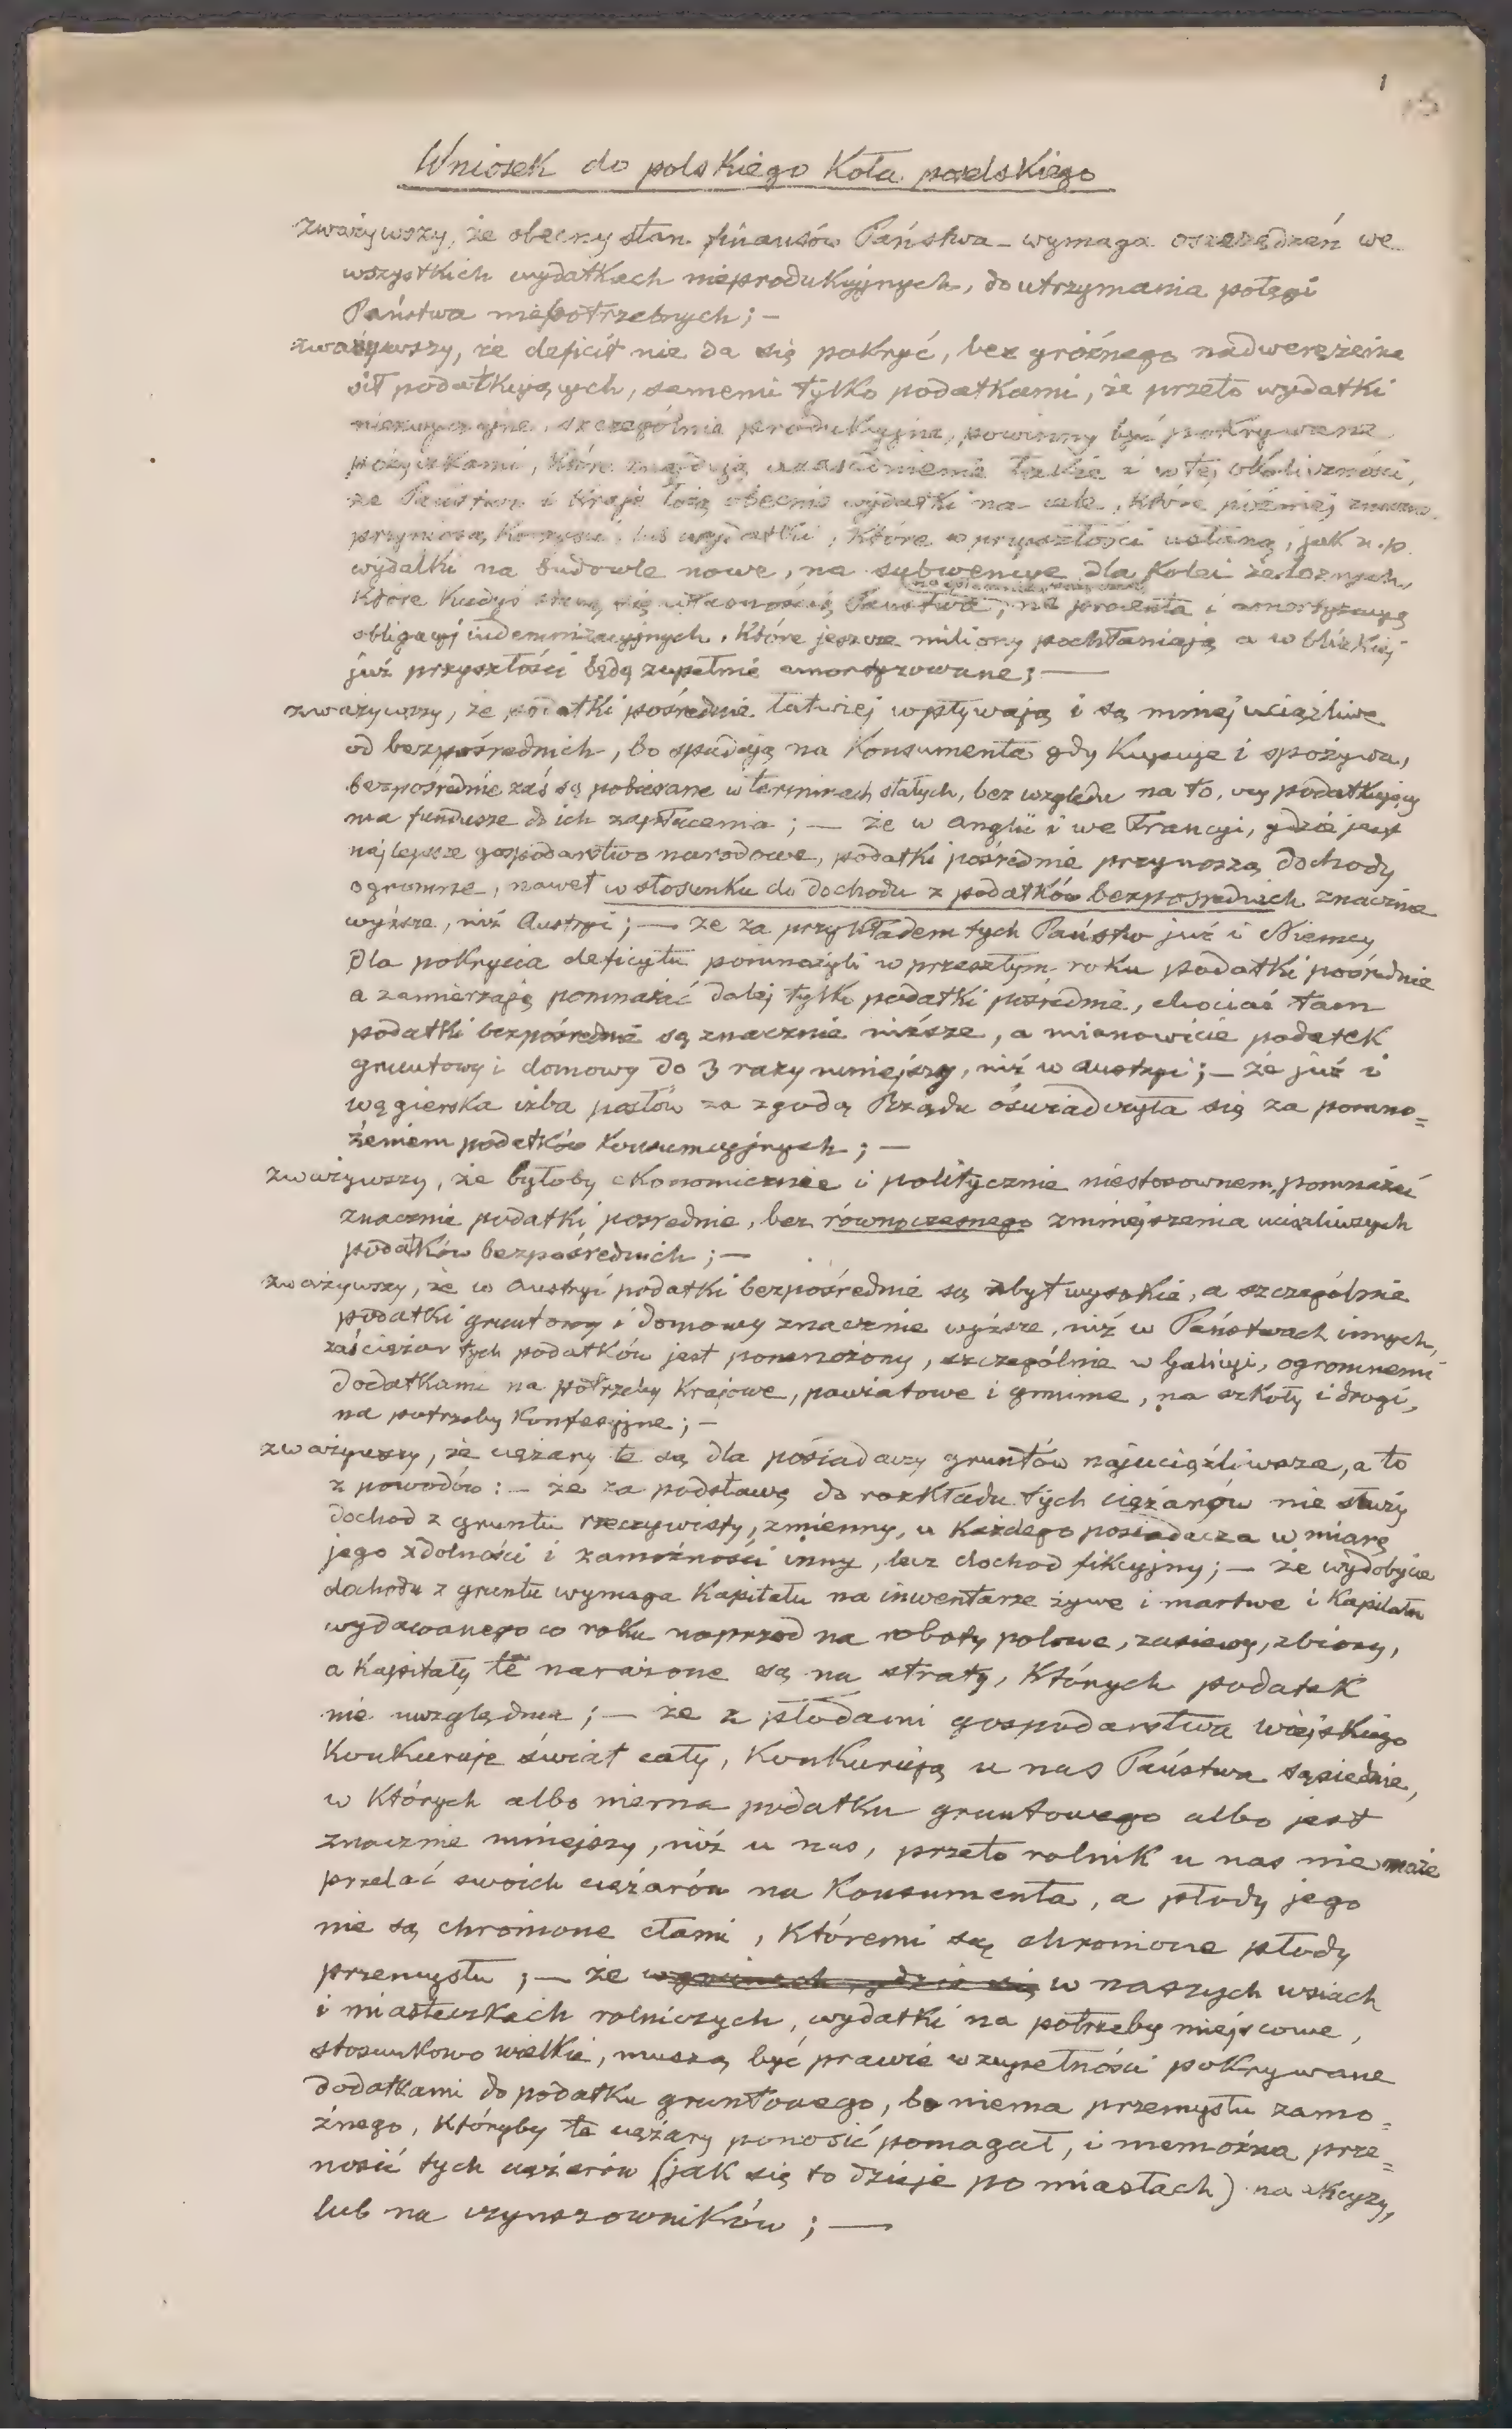 1
15
Wniosek do polskiego Koła poselskiego
zważywszy, że obecny stan finansów Państwa wymaga oszczędzeń we
wszystkich wydatkach nieprodukcyjnych, do utrzymania potęgi
Państwa niepotrzebnych; —
zważywszy, że deficit nie da się pokryć, bez groźnego nadwerężenia
sił podatkujących, samemi tylko podatkami, że przeto wydatki
niezwyczajne, szczególnie produkcyjne, powinny być pokrywane
pożyczkami, które znajdują uzasadnienie także i w tej okoliczności,
że Państwo i Kraje łożą obecnie wydatki na cele, które później znaczne
przyniosą korzyści, lub wydatki, które w przyszłości ustaną, jak n.p.
wydatki na budowle nowe, na subwencye dla Kolei żelaznych,
które kiedyś staną się własnością Państwa, na procenta i amortyzacyą
obligacyj indemnizacyjnych, które jeszcze miliony pochłaniają a w blizkiej
już przyszłości będą zupełnie amortyzowane; —
zważywszy, że podatki pośrednie łatwiej wpływają i są mniej uciążliwe
od bezpośrednich, bo spadają na Konsumenta gdy Kupuje i spożywa,
bezpośrednie zaś są pobierane w terminach stałych, bez względu na to, czy podatkujący
ma fundusze do ich zapłacenia; — że w Anglii i we Francyi, gdzie jest
najlepsze gospodarstwo narodowe, podatki pośrednie przynoszą dochody
ogromne, nawet w stosunku do dochodu z podatków bezpośrednich znacznie
wyższe, niż Austryi; — że za przykładem tych Państw już i Niemcy
dla pokrycia deficytu pomnożyli w przeszłym roku podatki pośrednie
a zamierzają pomnażać dalej tylko podatki pośrednie, chociaż tam
podatki bezpośrednie są znacznie niższe, a mianowicie podatek
gruntowy i domowy do 3 razy mniejszy, niż w Austryi; — że już i
węgierska izba posłów za zgodą Rządu oświadczyła się za pomno=
żeniem podatków Konsumcyjnych; —
zważywszy, że byłoby ekonomicznie i politycznie niestosownem, pomnażać
znacznie podatki pośrednie, bez równoczesnego zmniejszenia uciążliwszych
podatków bezpośrednich; —
zważywszy, że w Austryi podatki bezpośrednie są zbyt wysokie, a szczególnie
podatki gruntowy i domowy znacznie wyższe, niż w Państwach innych,
zaś ciężar tych podatków jest pomnożony, szczególnie w Galicyi, ogromnemi
dodatkami na potrzeby Krajowe, powiatowe i gminne, na szkoły i drogi,
na potrzeby Konfesyjne; —
zważywszy, że ciężary te są dla posiadaczy gruntów najuciążliwsze, a to
z powodów: — że za podstawę do rozkładu tych ciężarów nie służy
dochod z gruntu rzeczywisty, zmienny, u Każdego posiadacza w miarę
jego zdolności i zamożności inny, lecz dochod fikcyjny; — że wydobycie
dochodu z gruntu wymaga Kapitału na inwentarze żywe i martwe i Kapitału
wydawanego co roku naprzod na roboty polowe, zasiewy, zbiory,
a Kapitały te narażone są na straty, Których podatek
nie uwzględnia; — że z płodami gospodarstwa wiejskiego
Konkuruje świat cały, Konkurują u nas Państwa sąsiednie,
w Których albo niema podatku gruntowego albo jest
znacznie mniejszy, niż u nas, przeto rolnik u nas nie może
przelać swoich ciężarów na Konsumenta, a płody jego
nie są chronione cłami, Któremi są chronione płody
przemysłu; — że w gminach, gdzie się w naszych wsiach
i miasteczkach rolniczych, wydatki na potrzeby miejscowe,
stosunkowo wielkie, muszą być prawie w zupełności pokrywane
dodatkami do podatku gruntowego, bo niema przemysłu zamo=
żnego, Któryby te ciężary ponosić pomagał, i niemożna prze=
nosić tych ciężarów (jak się to dzieje po miastach) na akcyzy,
lub na czynszowników; —